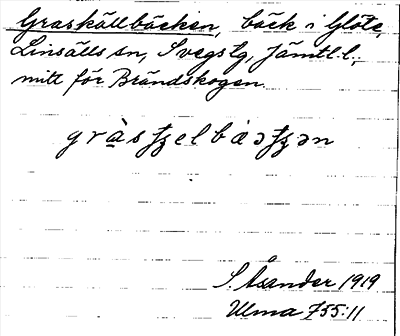 Graskällbäcken, bäck i Glöte,
Linsälls sn, Svegs tg, Jämtl. l.,
mitt för Brändskogen.
S. Åsander 1919
Ulma 755:11